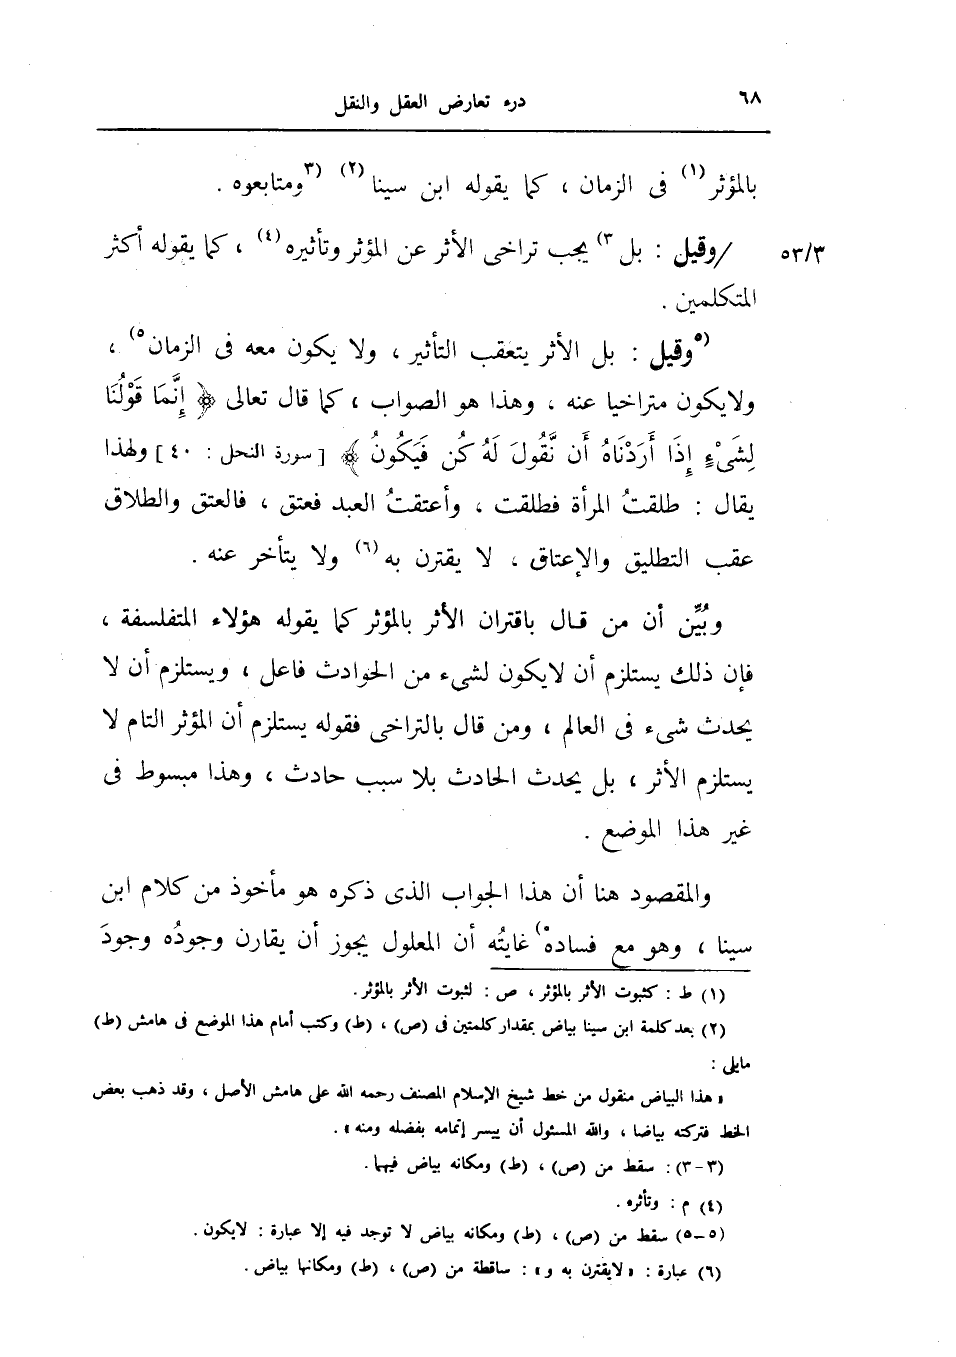 ٦٨ درء تعارض العقل والنقل
بالمؤثر(١) فى الزمان ، كما يقوله ابن سينا(٢) (٣ومتابعوه .
٥٣/٣ /وقيل : بل ٣) يجب تراخى الأثر عن المؤثر وتأثيره(٤) ، كما يقوله أكثر
المتكلمين .
(٥وقيل : بل الأثر يتعقب التأثير ، ولا يكون معه فى الزمان ٥) ،
ولايكون متراخيا عنه ، وهذا هو الصواب ، كما قال تعالى ﴿ إِنَّمَا قَوْلُنَا
لِشَىْءٍ إِذَا أَرَدْنَاهُ أَن نَّقُولَ لَهُ كُن فَيَكُونُ ﴾ [ سورة النحل : ٤٠ ] ولهذا
يقال : طلقتُ المرأة فطلقت ، وأعتقتُ العبد فعتق ، فالعتق والطلاق
عقب التطليق والإعتاق ، لا يقترن به(٦) ولا يتأخر عنه .
وبُيِّن أن من قال باقتران الأثر بالمؤثر كما يقوله هؤلاء المتفلسفة ،
فإن ذلك يستلزم أن لايكون لشىء من الحوادث فاعل ، ويستلزم أن لا
يحدث شىء فى العالم ، ومن قال بالتراخى فقوله يستلزم أن المؤثر التام لا
يستلزم الأثر ، بل يحدث الحادث بلا سبب حادث ، وهذا مبسوط فى
غير هذا الموضع .
والمقصود هنا أن هذا الجواب الذى ذكره هو مأخوذ من كلام ابن
سينا ، وهو مع فساده) غايتُه أن المعلول يجوز أن يقارن وجودُه وجودَ
(١) ط : كثبوت الأثر بالمؤثر ، ص : لثبوت الأثر بالمؤثر .
(٢) بعد كلمة ابن سينا بياض بمقدار كلمتين فى (ص) ، (ط) وكتب أمام هذا الموضع فى هامش (ط)
مايلى :
« هذا البياض منقول من خط شيخ الإسلام المصنف رحمه الله على هامش الأصل ، وقد ذهب بعض
الخط فتركته بياضا ، والله المسئول أن ييسر إتمامه بفضله ومنه » .
(٣-٣) : سقط من (ص) ، (ط) ومكانه بياض فيها .
(٤) م : وتأثره .
(٥-٥) سقط من (ص) ، (ط) ومكانه بياض لا توجد فيه إلا عبارة : لايكون .
(٦) عبارة : « لايقترن به و » : ساقطة من (ص) ، (ط) ومكانها بياض .